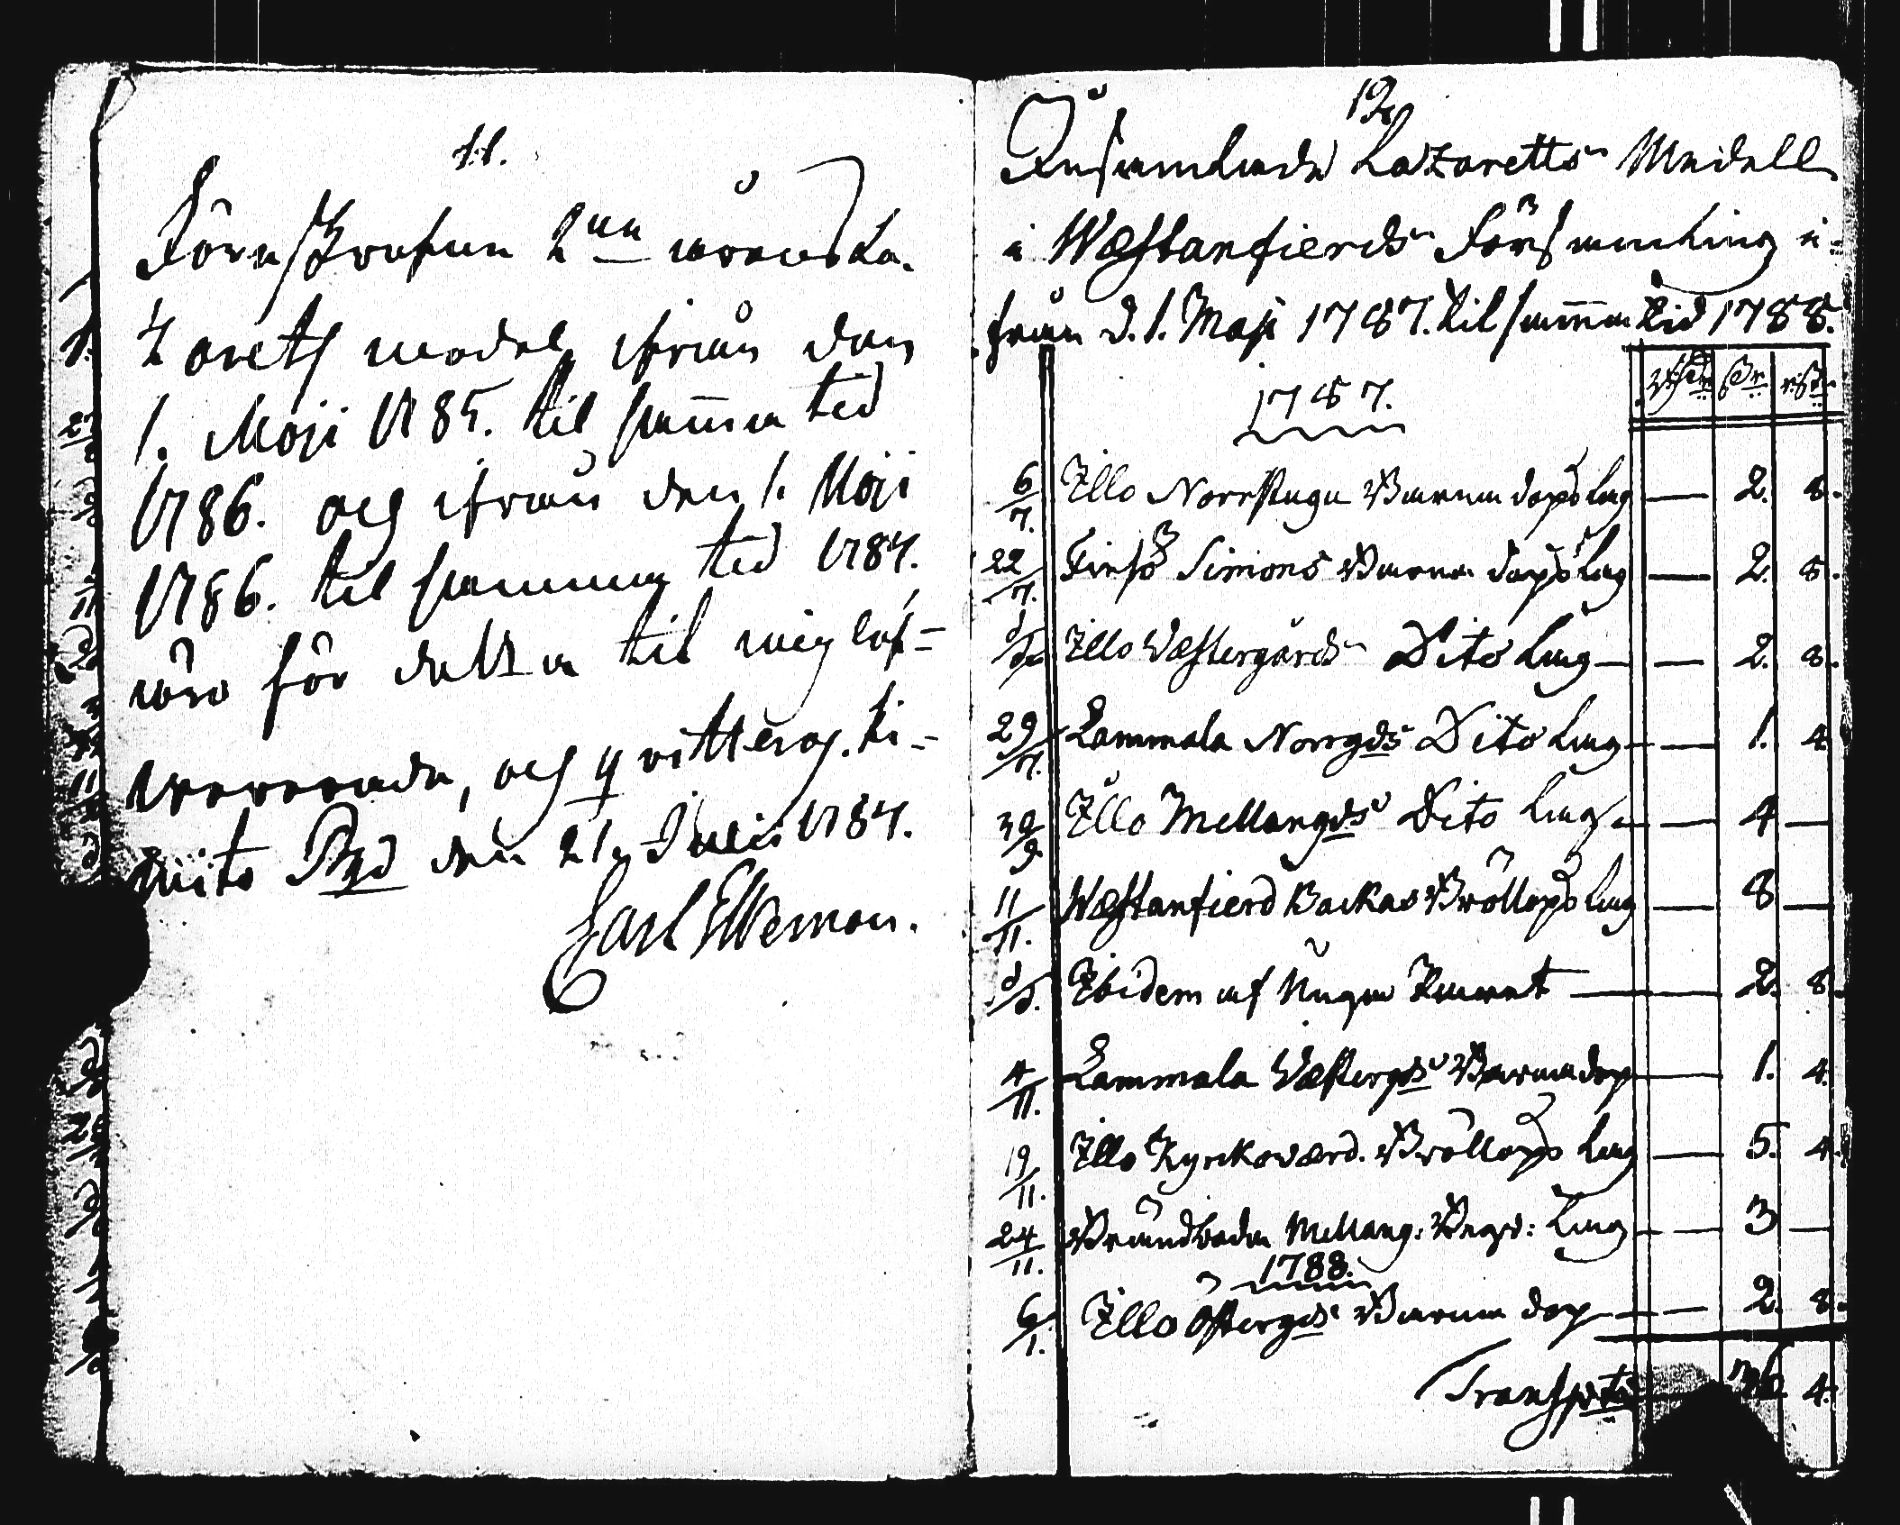 11.
Förnskrefne 2ne årens La-
zaretz medel ifrån den
1. Maji 1785. til samma tid
1786. och ifrån den 1. Maji
1786. til samma tid 1787.
äro för detta til mig lef-
vererade, och qvitteras. Ki-
mito Pgd den 21. Julii 1787.
Carl
12
Insamlade Lazaretts Medell
i Wæstanfierds Församling i-
från d. 1. Maji 1787. til samma tid 1788.
1787.
6/7. Illo Norrstugu Barna dops lag — 2. 8.
22/7. Finsö Simons Barna dops lag — 2. 8.
d/o Illo Wæstergårds Dito lag — 2. 8.
29/7. Lammala Norrgds Dito lag — 1. 4.
30/9 Illo Mellangds Dito lag — 4 —
11/11. Wæstanfierd Backas Bröllops lag — 8 —
d/o. Ibidem af Unga Paret — 2. 8.
4/11. Lammala Wæstergds Barnadop — 1. 4.
19/11. Illo Kyrckoværd. Bröllops lag — 5. 4.
24/11. Brändboda Mellang: Begr: lag — 3 —
1788.
6/1. Illo Östergds Barna dop — 2. 8.
Transport 4.